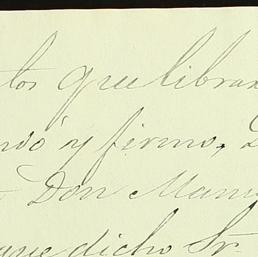 tos que libran
y firmo.
Don Manu
que dicho Sr